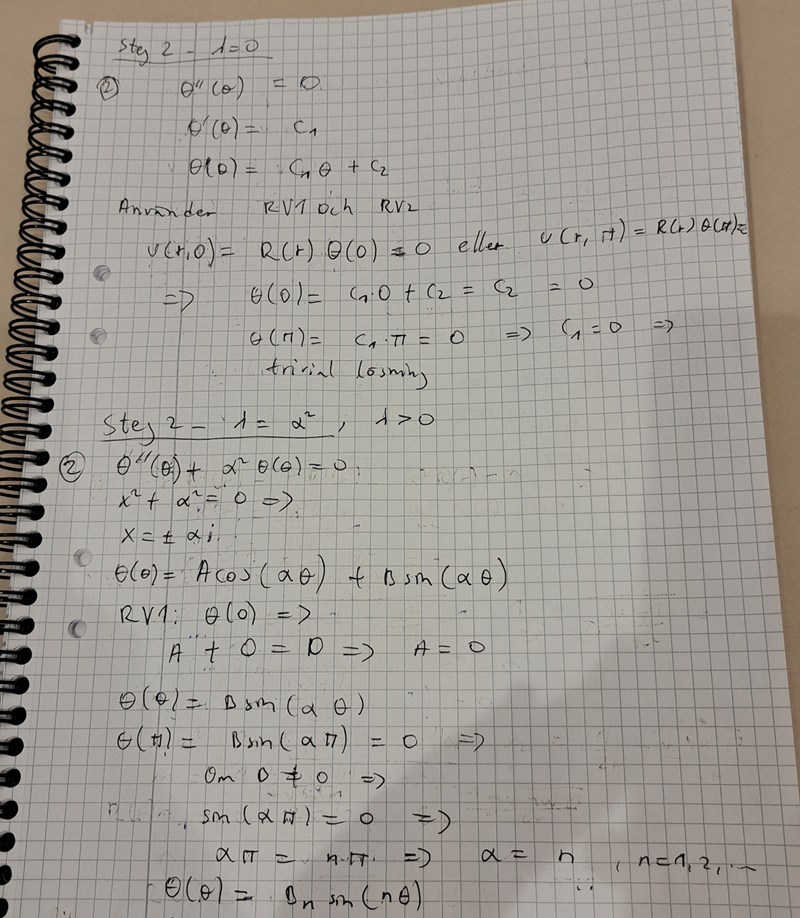 Steg 2 - λ=0
② θ''(θ) = 0
θ'(θ) = C₁
θ(θ) = C₁θ + C₂
Använder RV1 och RV2
U(r,0) = R(r) θ(0) = 0 eller U(r, π) = R(r) θ(π) =
=> θ(0) = C₁·0 + C₂ = C₂ = 0
θ(π) = C₁·π = 0 => C₁=0 =>
trivial lösning
Steg 2 - λ = α², λ>0
② θ''(θ) + α² θ(θ) = 0
x² + α² = 0 =>
x = ± αi
θ(θ) = A cos(αθ) + B sin(αθ)
RV1: θ(0) =>
A + 0 = 0 => A = 0
θ(θ) = B sin(α θ)
θ(π) = B sin(α π) = 0 =>
Om B ≠ 0 =>
sin(α π) = 0 =>
απ = n·π => α = n , n=1,2,...
θ(θ) = Bₙ sin(nθ)